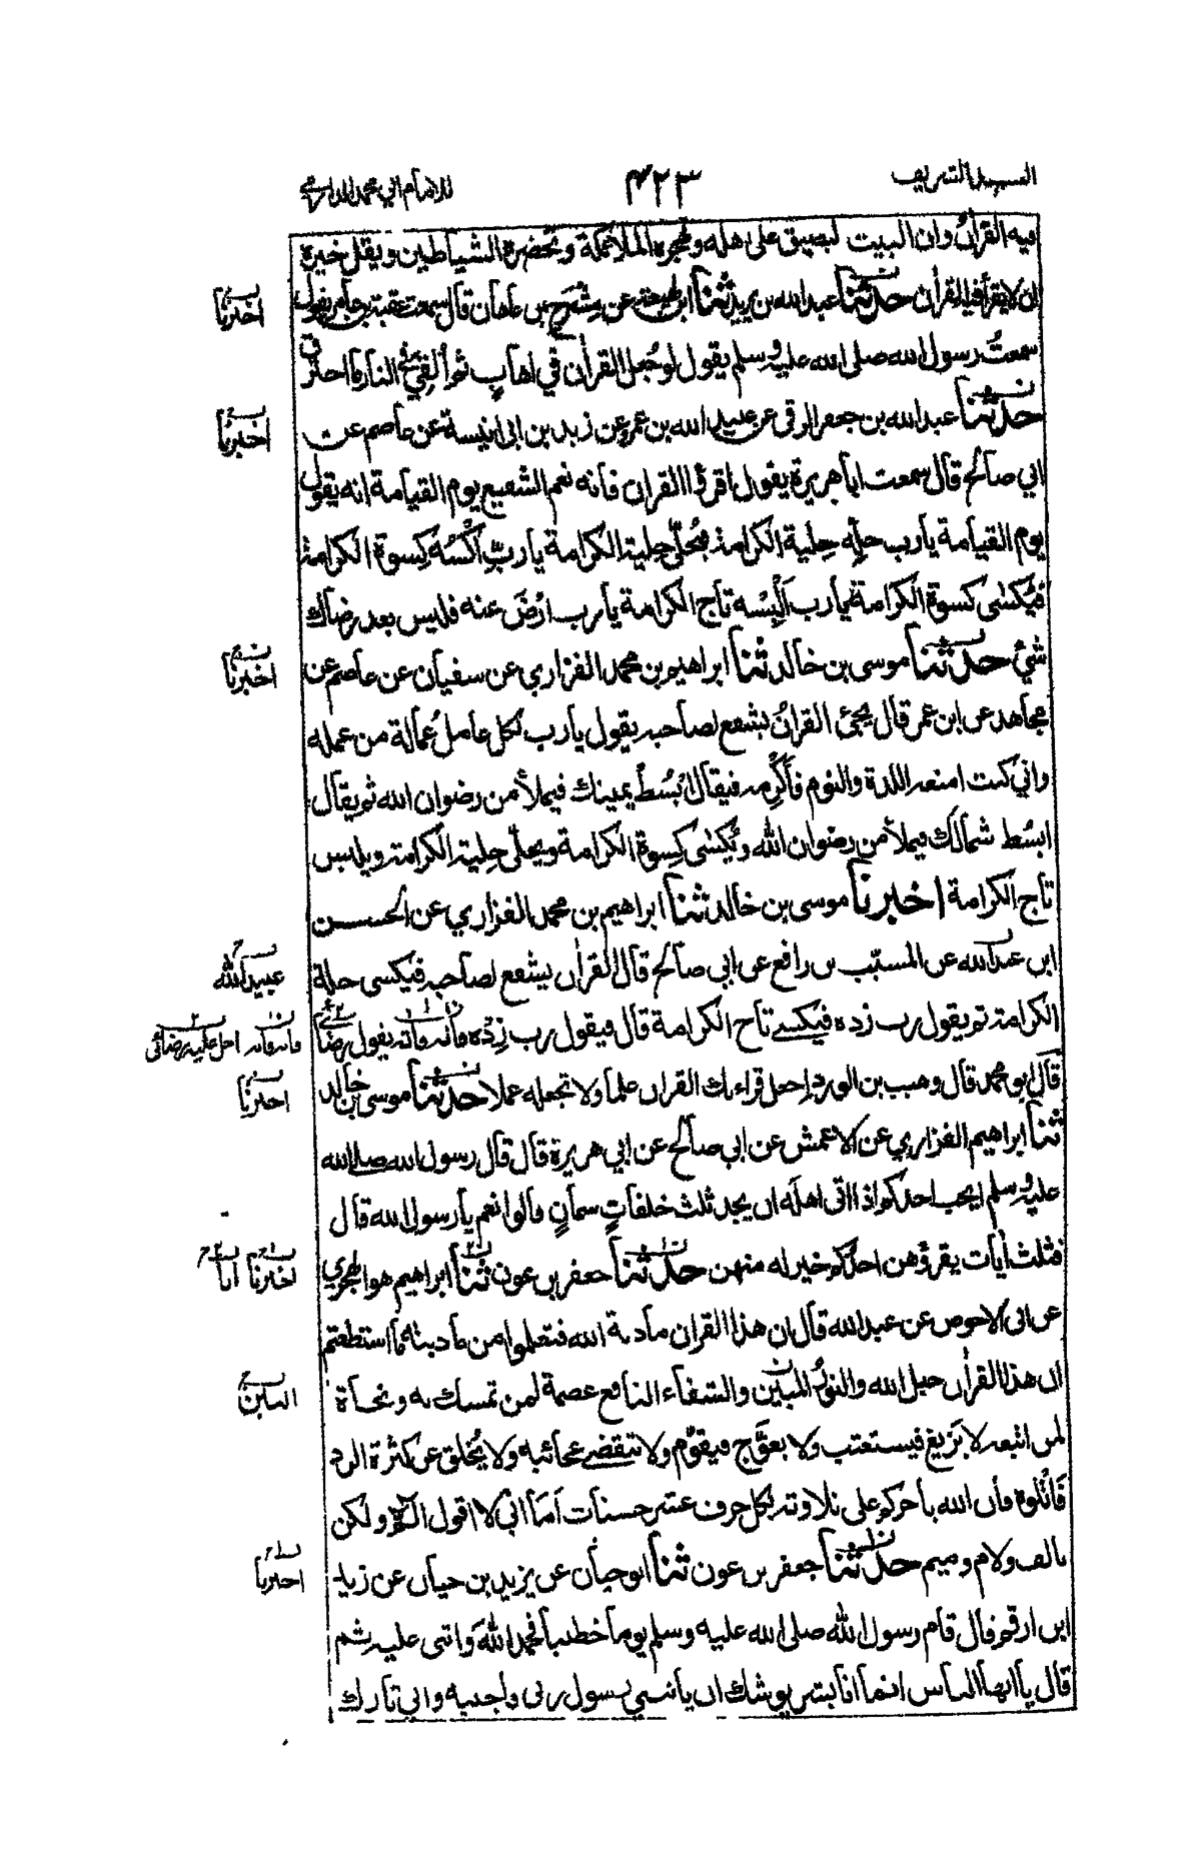 المسند الشريف ٤٢٣ للامام ابي محمد الدارمي
فيه القرآنُ وان البيت ليضيق على اهله وتهجره الملائكة وتحضره الشياطين ويقل خيره
ان لا يقرأ فيه القرآن حدثنا عبد الله بن يزيد ثنا ابن لهيعة عن مِشْرَح بن هاعان قال سمعت عقبة بن عامر يقول
اخبرنا
سمعتُ رسول الله صلى الله عليه وسلم يقول لو جُعل القرآن في اهابٍ ثم أُلقِيَ في النار ما احترق
حدثنا عبد الله بن جعفر الرقي عن عبيد الله بن عمرو عن زيد بن ابي انيسة عن عاصم عن
اخبرنا
ابي صالح قال سمعت ابا هريرة يقول اقرؤا القرآن فانه نعم الشفيع يوم القيامة انه يقول
يوم القيامة يا رب حلِّه حِلية الكرامة فيُحلّى حِلية الكرامة يا ربِّ اكْسُه كِسوة الكرامة
فيُكسٰى كسوة الكرامة يا رب اَلْبِسْه تاج الكرامة يا رب ارْضَ عنه فليس بعد رضاك
شئ حدثنا موسى بن خالد ثنا ابراهيم بن محمد الفزاري عن سفيان عن عاصم عن
اخبرنا
مجاهد عن ابن عمر قال يجئ القرآنُ يشفع لصاحبه يقول يا رب لكل عامل عُمالة من عمله
واني كنت امنعه اللذة والنوم فأَكْرِمه فيقال ابْسُطْ يمينك فيملأ من رضوان الله ثم يقال
ابسُط شمالك فيملأ من رضوان الله ويُكسٰى كِسوة الكرامة ويحلّى حِلية الكرامة ويلبس
تاج الكرامة اخبرنا موسى بن خالد ثنا ابراهيم بن محمد الفزاري عن الحسن
ابن عبد الله عن المسيّب بن رافع عن ابي صالح قال القرآن يشفع لصاحبه فيكسى حلة
عبيد الله
الكرامة ثم يقول رب زده فيكسى تاج الكرامة قال فيقول رب زِدْه فاٰته فاٰته يقول رضائي
فاٰته فاٰته احل عليه رضائي
قال ابو محمد قال وهيب بن الورد اجعل قراءتك القرآن علما ولا تجعله عملا حدثنا موسى بن خالد
اخبرنا
ثنا ابراهيم الفزاري عن الاعمش عن ابي صالح عن ابي هريرة قال قال رسول الله صلى الله
عليه وسلم ايحب احدكم اذا اتى اهلَه ان يجد ثلث خلفاتٍ سمانٍ قالوا نعم يا رسول الله قال
فثلث اٰيات يقرؤهن احدكم خير له منهن حدثنا جعفر بن عون ثنا ابراهيم هو الهجري
اخبرنا انا
عن ابي الاحوص عن عبد الله قال ان هذا القرآن مأدبة الله فتعلموا من مأدبته ما استطعتم
ان هذا القرآن حبل الله والنورُ المبين والشفاء النافع عصمة لمن تمسك به ونجاة
البين
لمن اتبعه لا يَزيغ فيستعتب ولا يعوَّج فيقوَّم ولا تنقضي عجائبه ولا يُخلق عن كثرة الرد
فَاتْلُوه فان الله يأجركم على تلاوته بكل حرف عشر حسنات اَمَا اني لا اقول الٓمٓ ولكن
بالف ولام وميم حدثنا جعفر بن عون ثنا ابو حيان عن يزيد بن حيان عن زيد
اخبرنا
ابن ارقم قال قام رسول الله صلى الله عليه وسلم يوما خطيبا فحمد اللهَ واثنى عليه ثم
قال يا ايها الناس انما انا بشر يوشك ان يأتيني رسول ربي فاجيبه واني تارك